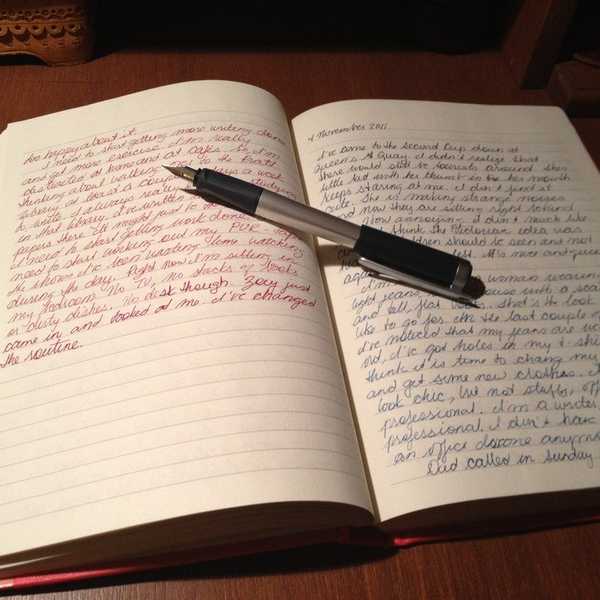 too happy about it.
I need to start getting more writing done
and get more exercise. I'm really
distracted at home and at cafes. So I'm
thinking about walking
to write. I always
in that library. I've written
papers there. It might just
I need to start getting work done
need to start working out my PVR
the shows I've been wanting
during the day. Right now I'm sitting in
my bedroom. No TV, no stacks of books
or dirty dishes. No desk though. Zoey just
came in and looked at me. I've changed
the routine.
4 November 2011
I've come to the Second Cup down at
Queen's Quay. I didn't realize that
there would still be tourists around. The
little kid with her thumb in her mouth
keeps staring at me. I don't find it
cute. She is making strange noises
and now they are sitting right behind
How annoying. I don't much like
think the Victorian idea was
children should be seen and not
It's nice and quiet
again
woman wearing
light jeans, with a
and tall, flat That's the look
like to go for. In the last couple of
I've noticed that my jeans are
old. I've got holes in my t-shi
think it is time to change my
and get some new clothes. I
look chic, but not stuffy, off
professional. I'm a writer
professional. I don't have
an office anym
Dad called in Sunday